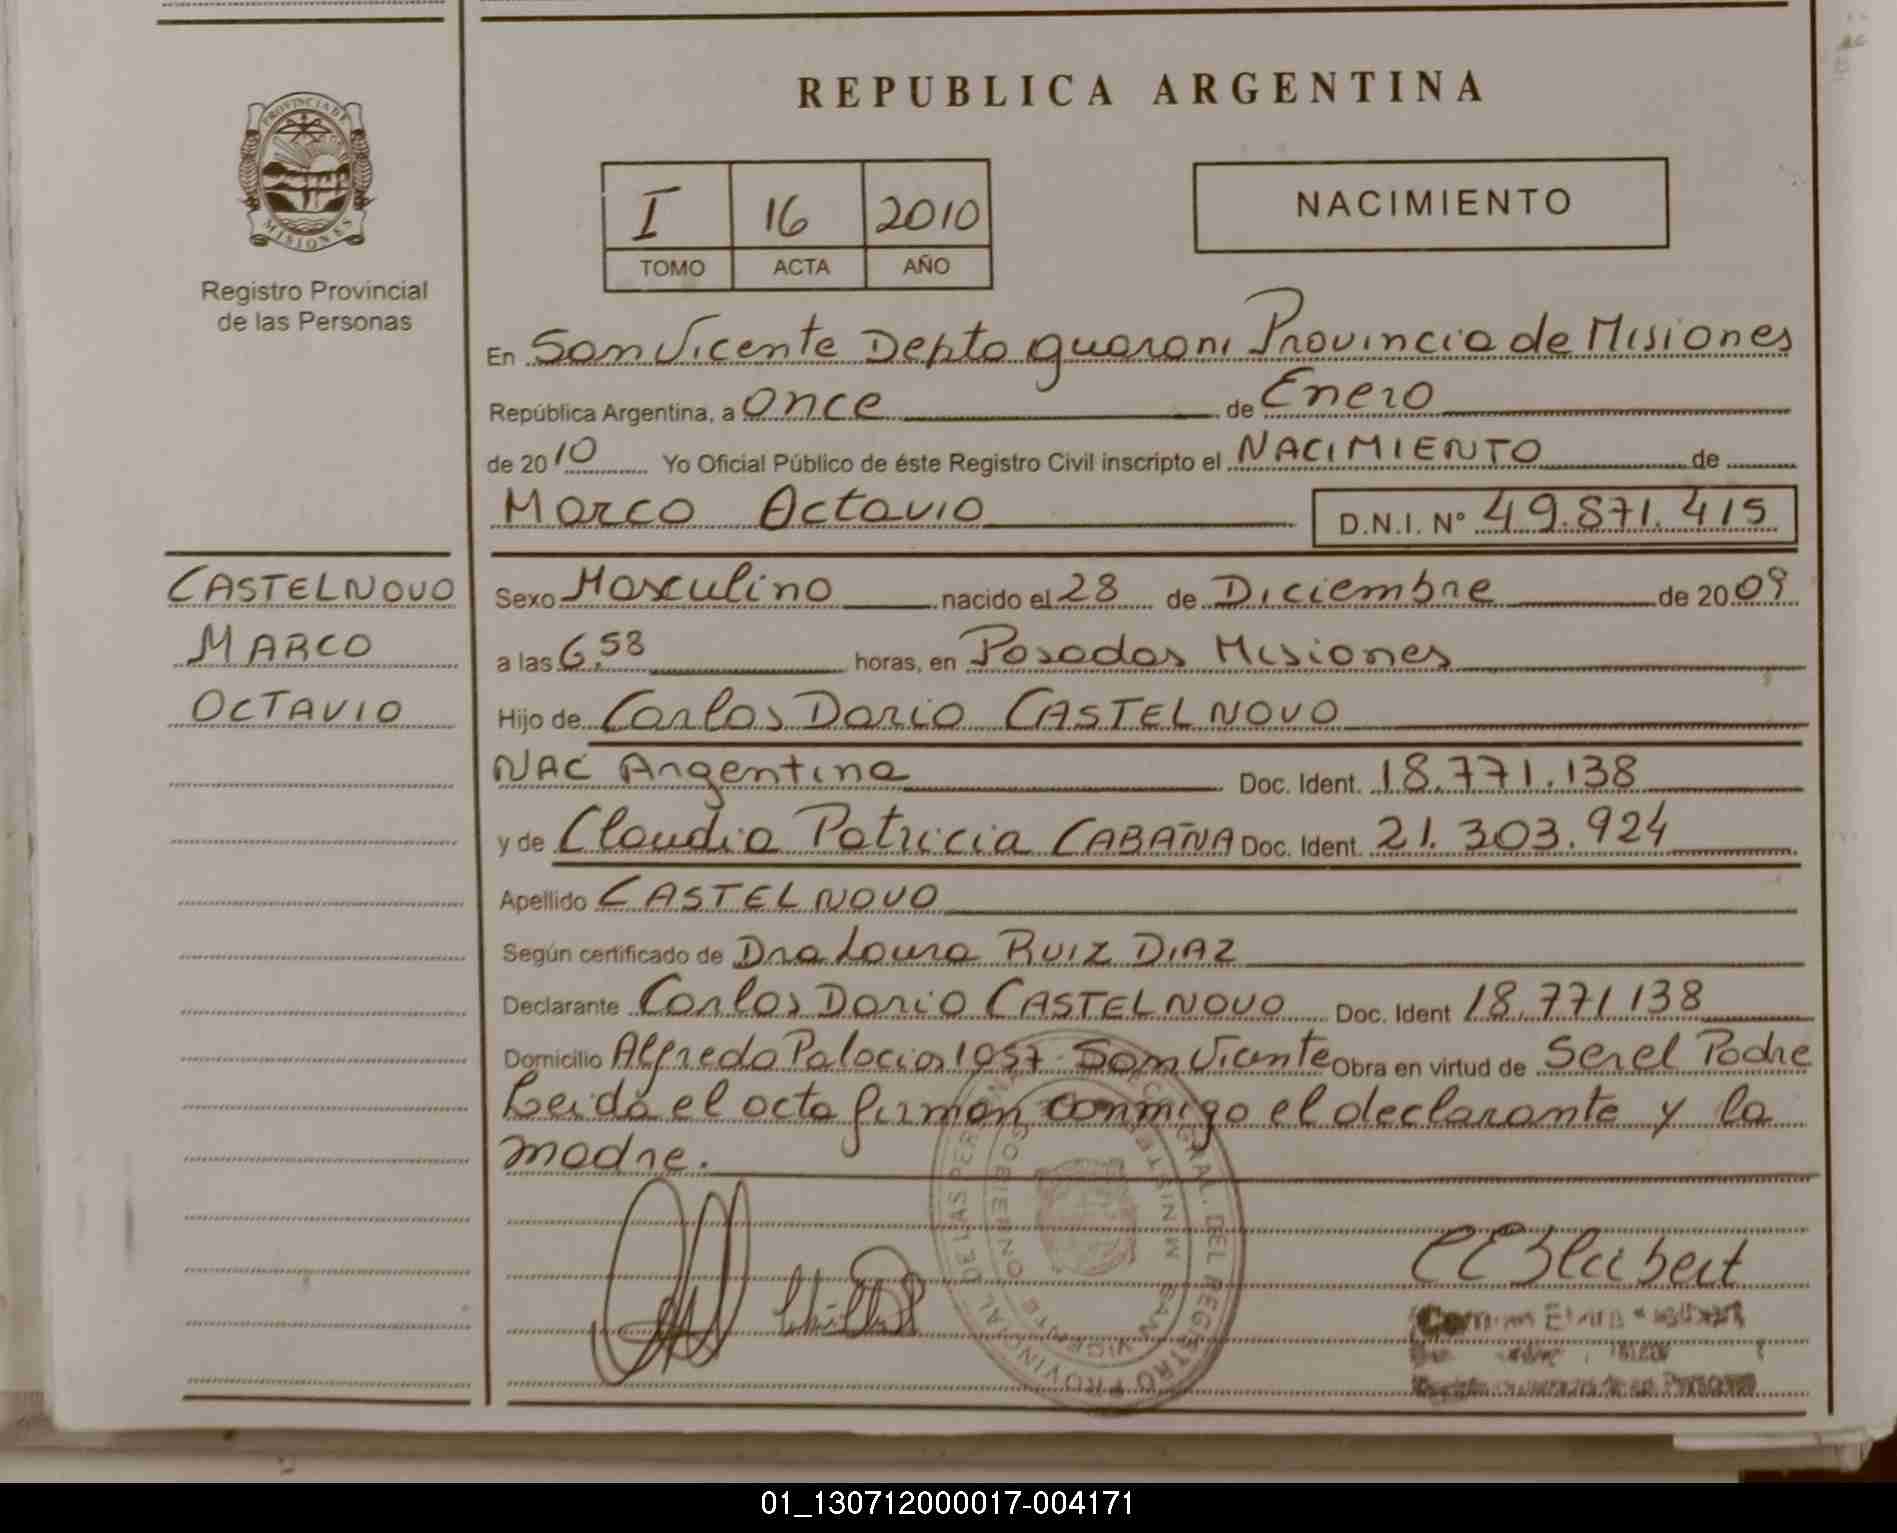 REPUBLICA ARGENTINA
PROVINCIA DE
MISIONES
Registro Provincial
de las Personas
I 16 2010
TOMO ACTA AÑO
NACIMIENTO
En San Vicente Depto guarani Provincia de Misiones
República Argentina, a once de Enero
de 2010 Yo Oficial Público de éste Registro Civil inscripto el NACIMIENTO de
Marco Octavio D.N.I. Nº 49.871.415
CASTELNOVO
MARCO
OCTAVIO
Sexo Masculino nacido el 28 de Diciembre de 2009
a las 6,58 horas, en Posadas Misiones
Hijo de Carlos Dario CASTELNOVO
NAC Argentina Doc. Ident. 18.771.138
y de Claudia Patricia CABAÑA Doc. Ident. 21.303.924
Apellido CASTELNOVO
Según certificado de Dra Laura RUIZ DIAZ
Declarante Carlos Dario CASTELNOVO Doc. Ident 18.771138
Domicilio Alfredo Palacios 1057 San Vicente Obra en virtud de Ser el Padre
Leida el acta firman conmigo el declarante y la
madre.
01_130712000017-004171